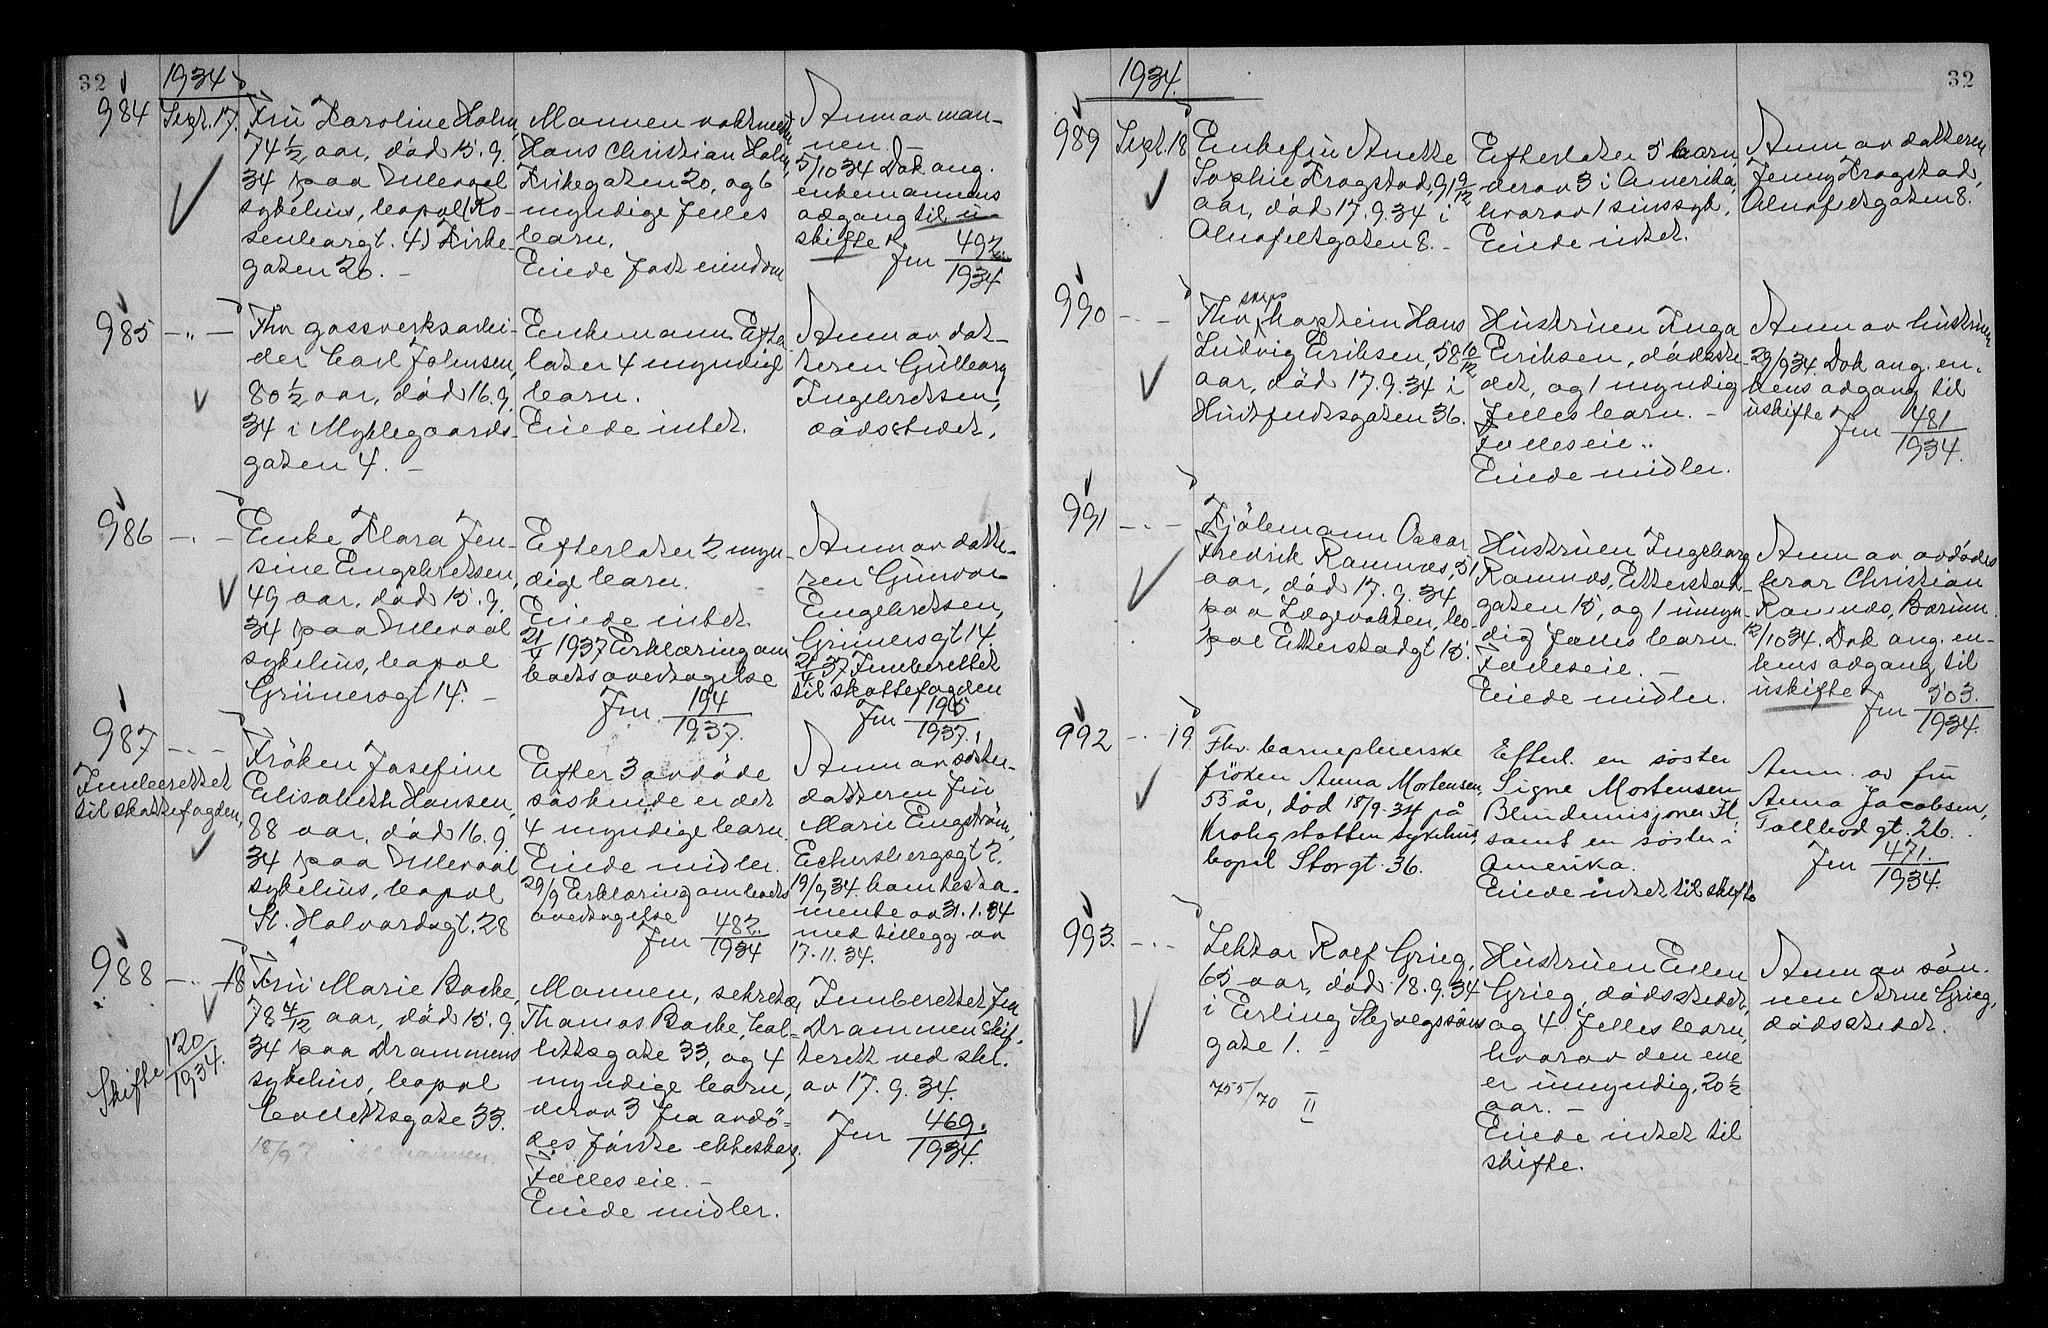 32
1934
984
Sept. 17.
Fru Karoline Holm,
74 1/2 aar, död 15.9.
34 paa Ullevaal
sykehus, bopæl (Ro-
senborggt. 4) Kirke-
gaten 20. -
Mannen vaktmester
Hans Christian Holm,
Kirkegaten 20, og 6
myndige felles
barn.
Eiede fast eiendom
Anm av man-
nen. -
5/10 34 Dok ang.
enkemannens
adgang til u-
skifte
Jnr 492/1934
985
- " -
Fhv gassverksarbei-
der Carl Johnsen,
80 1/2 aar, död 16.9.
34 i Myklegaards-
gaten 4. -
Enkemann. Efter-
later 4 myndige
barn.
Eiede intet.
Anm av dat-
teren Gulborg
Ingebretsen,
dödsstedet.
986
- " -
Enke Klara Jen-
sine Engebretsen,
49 aar, död 15.9.
34 paa Ullevaal
sykehus, bopæl
Grünersgt 14. -
Efterlater 2 myn-
dige barn.
Eiede intet.
1937 Erklæring om
boets overtagelse
Jnr 194/1937.
Anm av datte-
ren Gunvor
Engebretsen,
Grünersgt 14
37 Innberettet
til skattefogden
Jnr 195/1937.
987
- " -
Innberettet
til skattefogden,
Fröken Josefine
Elisabeth Hansen,
88 aar, död 16.9.
34 paa Ullevaal
sykehus, bopæl
St. Halvardsgt. 28
Efter 3 avdöde
söskende er det
4 myndige barn.
Eiede midler.
29/9 Erklæring om boets
overtagelse
Jnr 482/1934
Anm av söster-
datteren fru
Marie Engström,
Eckersbergsgt 2.
19/9 34 kom testa-
mente av 31.1.34
med tillegg av
17.11.34.
988
- " - 18
Skifte 120/1934.
Fru Marie Backe,
78 4/12 aar, död 15.9.
34 paa Drammens
sykehus, bopæl
Collettsgate 33.
18/9
Mannen, sekretær
Thomas Backe, Col-
lettsgate 33, og 4
myndige barn,
derav 3 fra avdö-
des förste ekteskap.
Fælleseie. -
Eiede midler.
Innberettet fra
Drammen skif-
terett ved skr.
av 17.9.34.
Jnr 469/1934.
32
1934.
989
Sept. 18
Enkefru Anette
Sophie Krogstad, 91 9/12
aar, död 17.9.34 i
Alnafetgaten 8. -
Efterlater 5 barn,
derav 3 i Amerika,
hvorav 1 sinssyk.
Eiede intet.
Anm av datteren
Jenny Krogstad,
Alnafetgaten 8.
990
- " -
Fhv skips kaptein Hans
Ludvig Eriksen, 58 10/12
aar, död 17.9.34 i
Huitfeldtsgaten 36.
Hustruen Inga
Eriksen, dödsste-
det, og 1 myndig
felles barn. -
Fælleseie.
Eiede midler.
Anm av hustruen
29/9 34 Dok ang. en-
kens adgang til
uskifte
Jnr 481/1934.
991
- " -
Kjölemann Oscar
Fredrik Ramnæs, 51
aar, död 17.9.34
paa Lægevakten, bo-
pæl Etterstadgt 15.
Hustruen Ingeborg
Ramnæs, Etterstad-
gaten 15, og 1 umyn-
dig fælles barn.
Fælleseie. -
Eiede midler.
Anm av avdödes
bror Christian
Ramnæs, Bærum.
12/10 34. Dok ang. en-
kens adgang til
uskifte
Jnr 503/1934.
992
- " - 19
Fhv. barnepleierske
frøken Anna Mortensen,
55 år, død 18/9.34 på
Krohgstøtten sykehus,
bopel Storgt. 36.
Efterl. en søster
Signe Mortensen
Blindemisjonen
samt en søster i
Amerika.
Eiede intet til skifte
Anm. av fru
Anna Jacobsen,
Tollbodgt. 26.
Jnr 471/1934.
993.
- " -
Lektor Rolf Grieg,
65 aar, död 18.9.34
i Erling Skjalgssöns
gate 1. -
755/70 II
Hustruen Ellen
Grieg, dödsstedet,
og 4 felles barn,
hvorav den ene
er umyndig, 20 1/2
aar. -
Eiede intet til
skifte.
Anm av søn-
nen Arne Grieg,
dödsstedet.